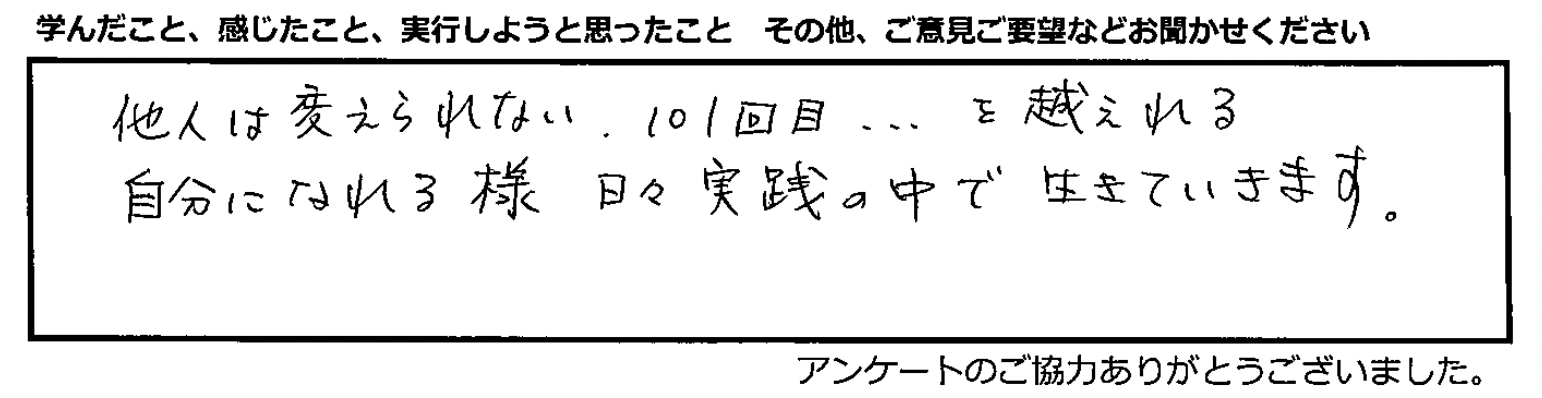 学んだこと、感じたこと、実行しようと思ったこと　その他、ご意見ご要望などお聞かせください
他人は変えられない. 101回目 ... を越えれる
自分になれる様 日々実践の中で 生きていきます。
アンケートのご協力ありがとうございました。